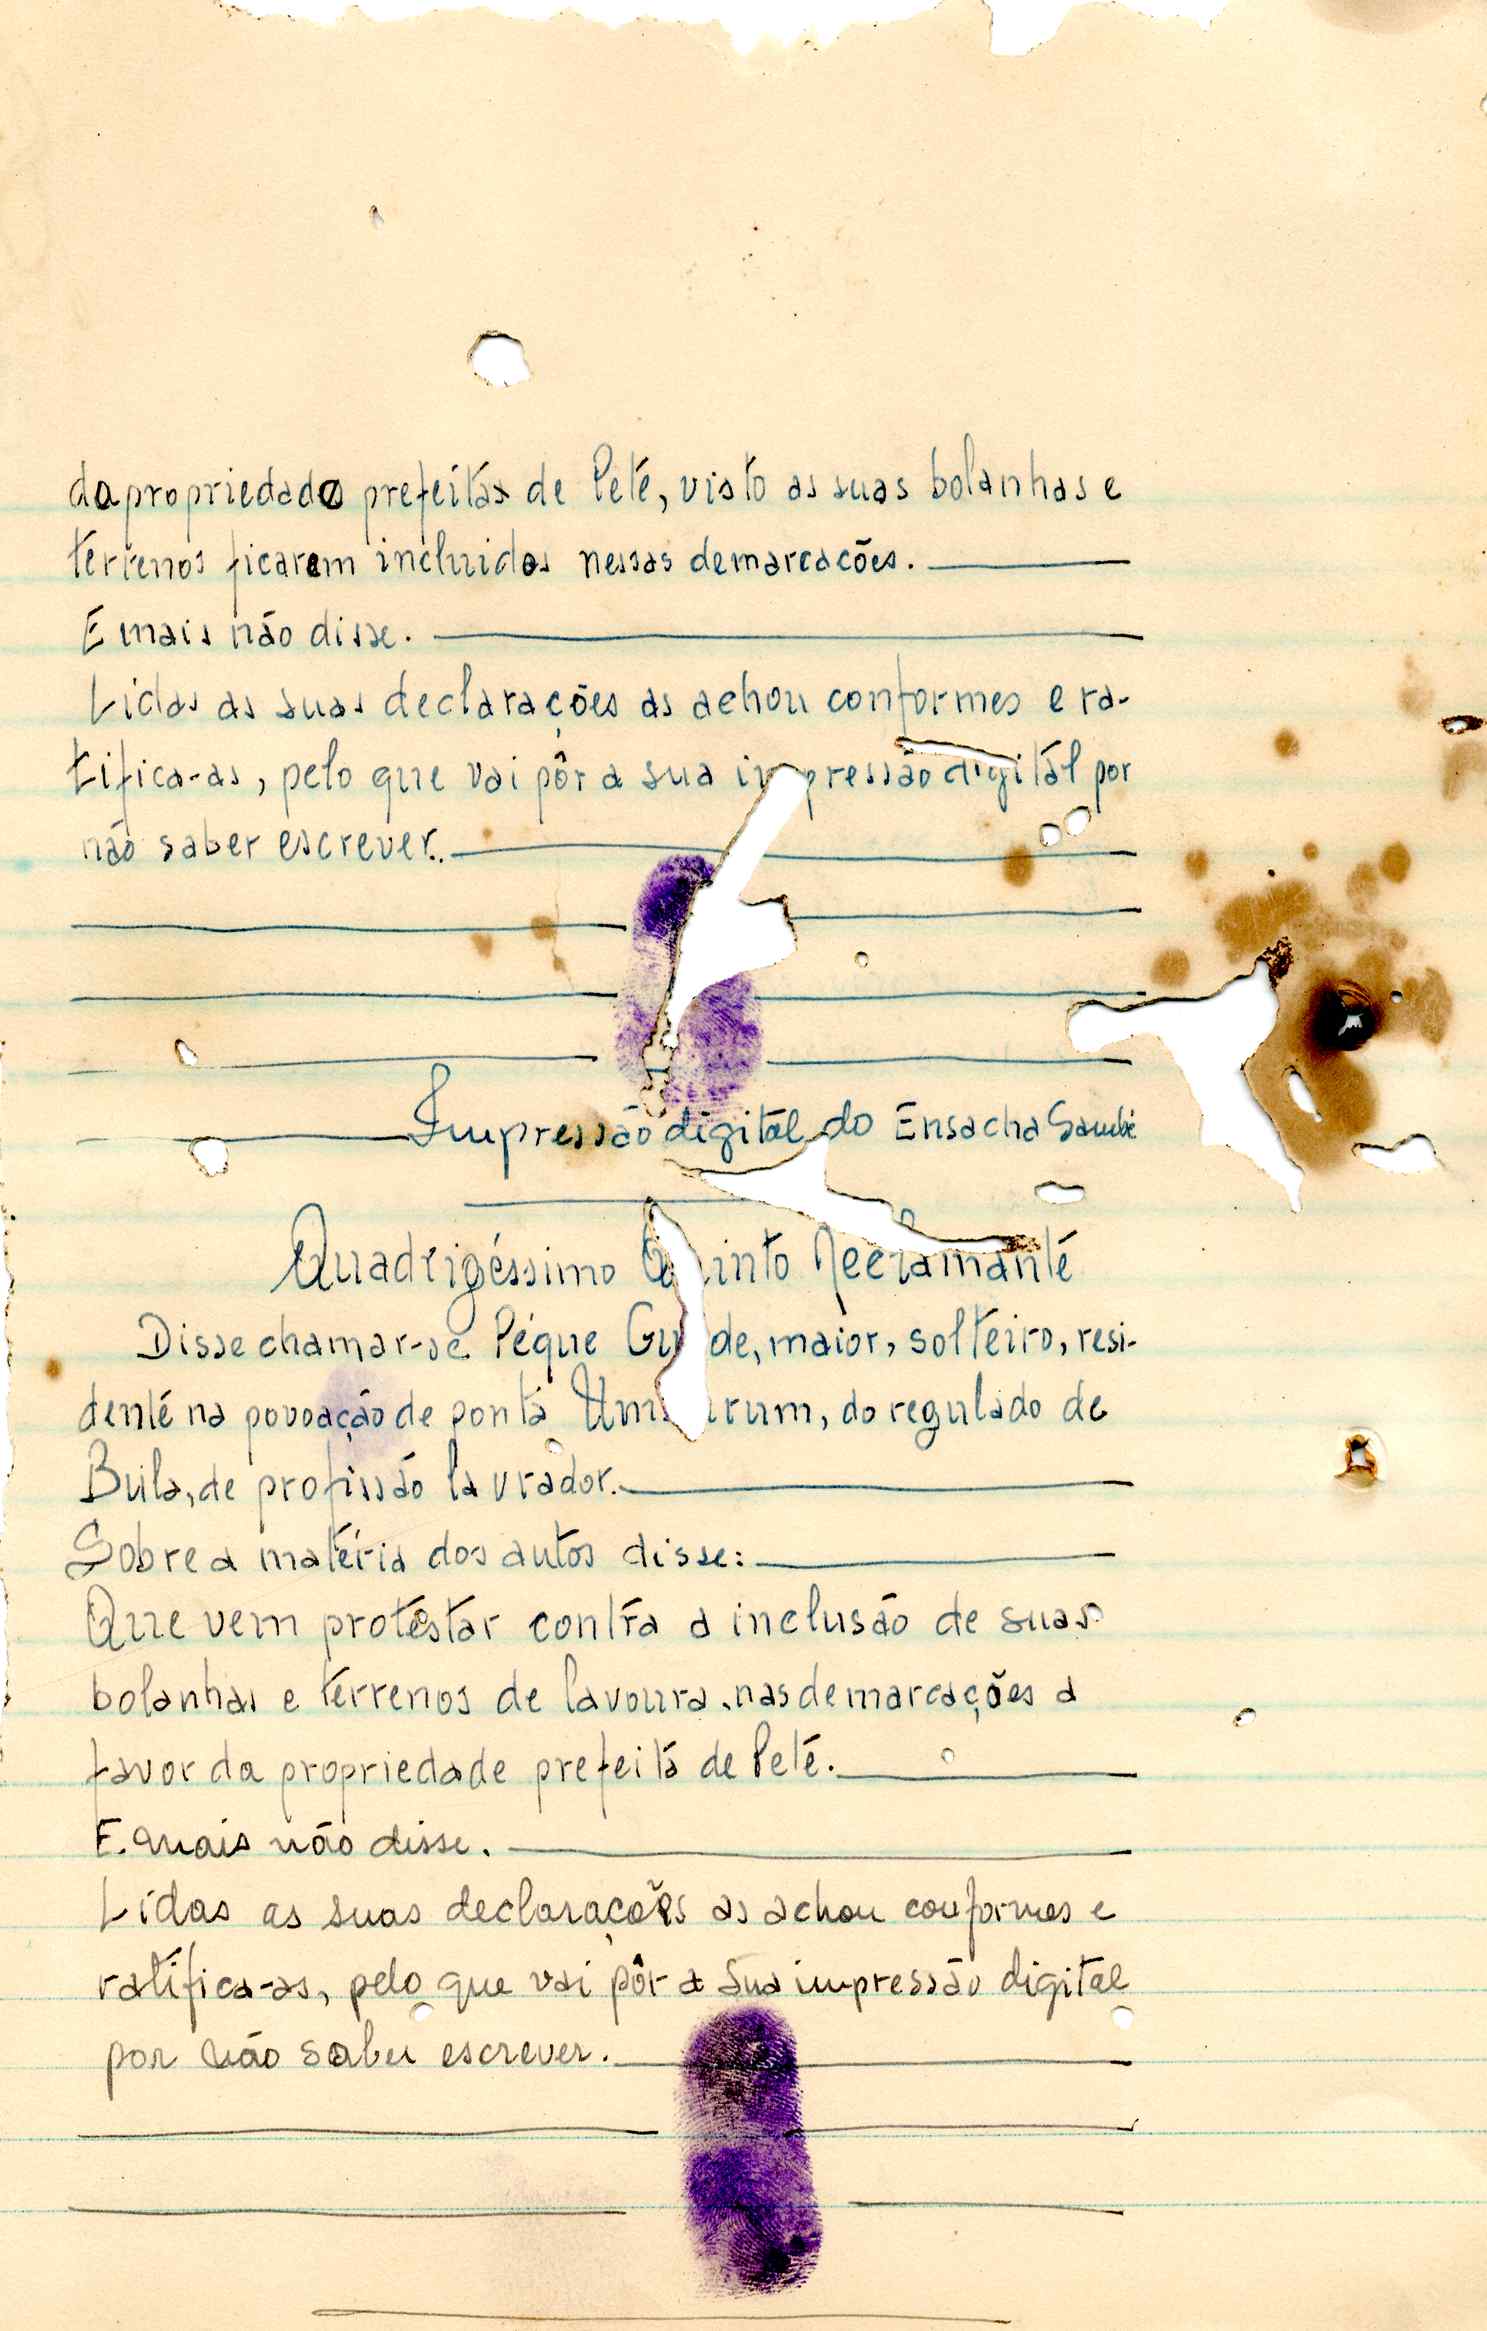 da propriedade prefeitas de Peté, visto as suas bolanhas e
terrenos ficarem incluidas nessas demarcacões.
E mais não disse.
Lidas as suas declarações as achou conformes e ra-
tifica-as, pelo que vai pôr a sua impressão digital por
não saber escrever.
Impressão digital do Ensacha Sambé
Quadrigéssimo Quinto Reclamante
Disse chamar-se Péque, maior, solteiro, resi-
dente na povoação de ponta, do regulado de
Bula, de profissão lavrador.
Sobre a matéria dos autos disse:
Que vem protestar contra a inclusão de suas
bolanhas e terrenos de lavoura, nas demarcações a
favor da propriedade prefeita de Peté.
E. mais não disse.
Lidas as suas declarações as achou conformes e
ratifica-as, pelo que vai pôr a sua impressão digital
por não saber escrever.